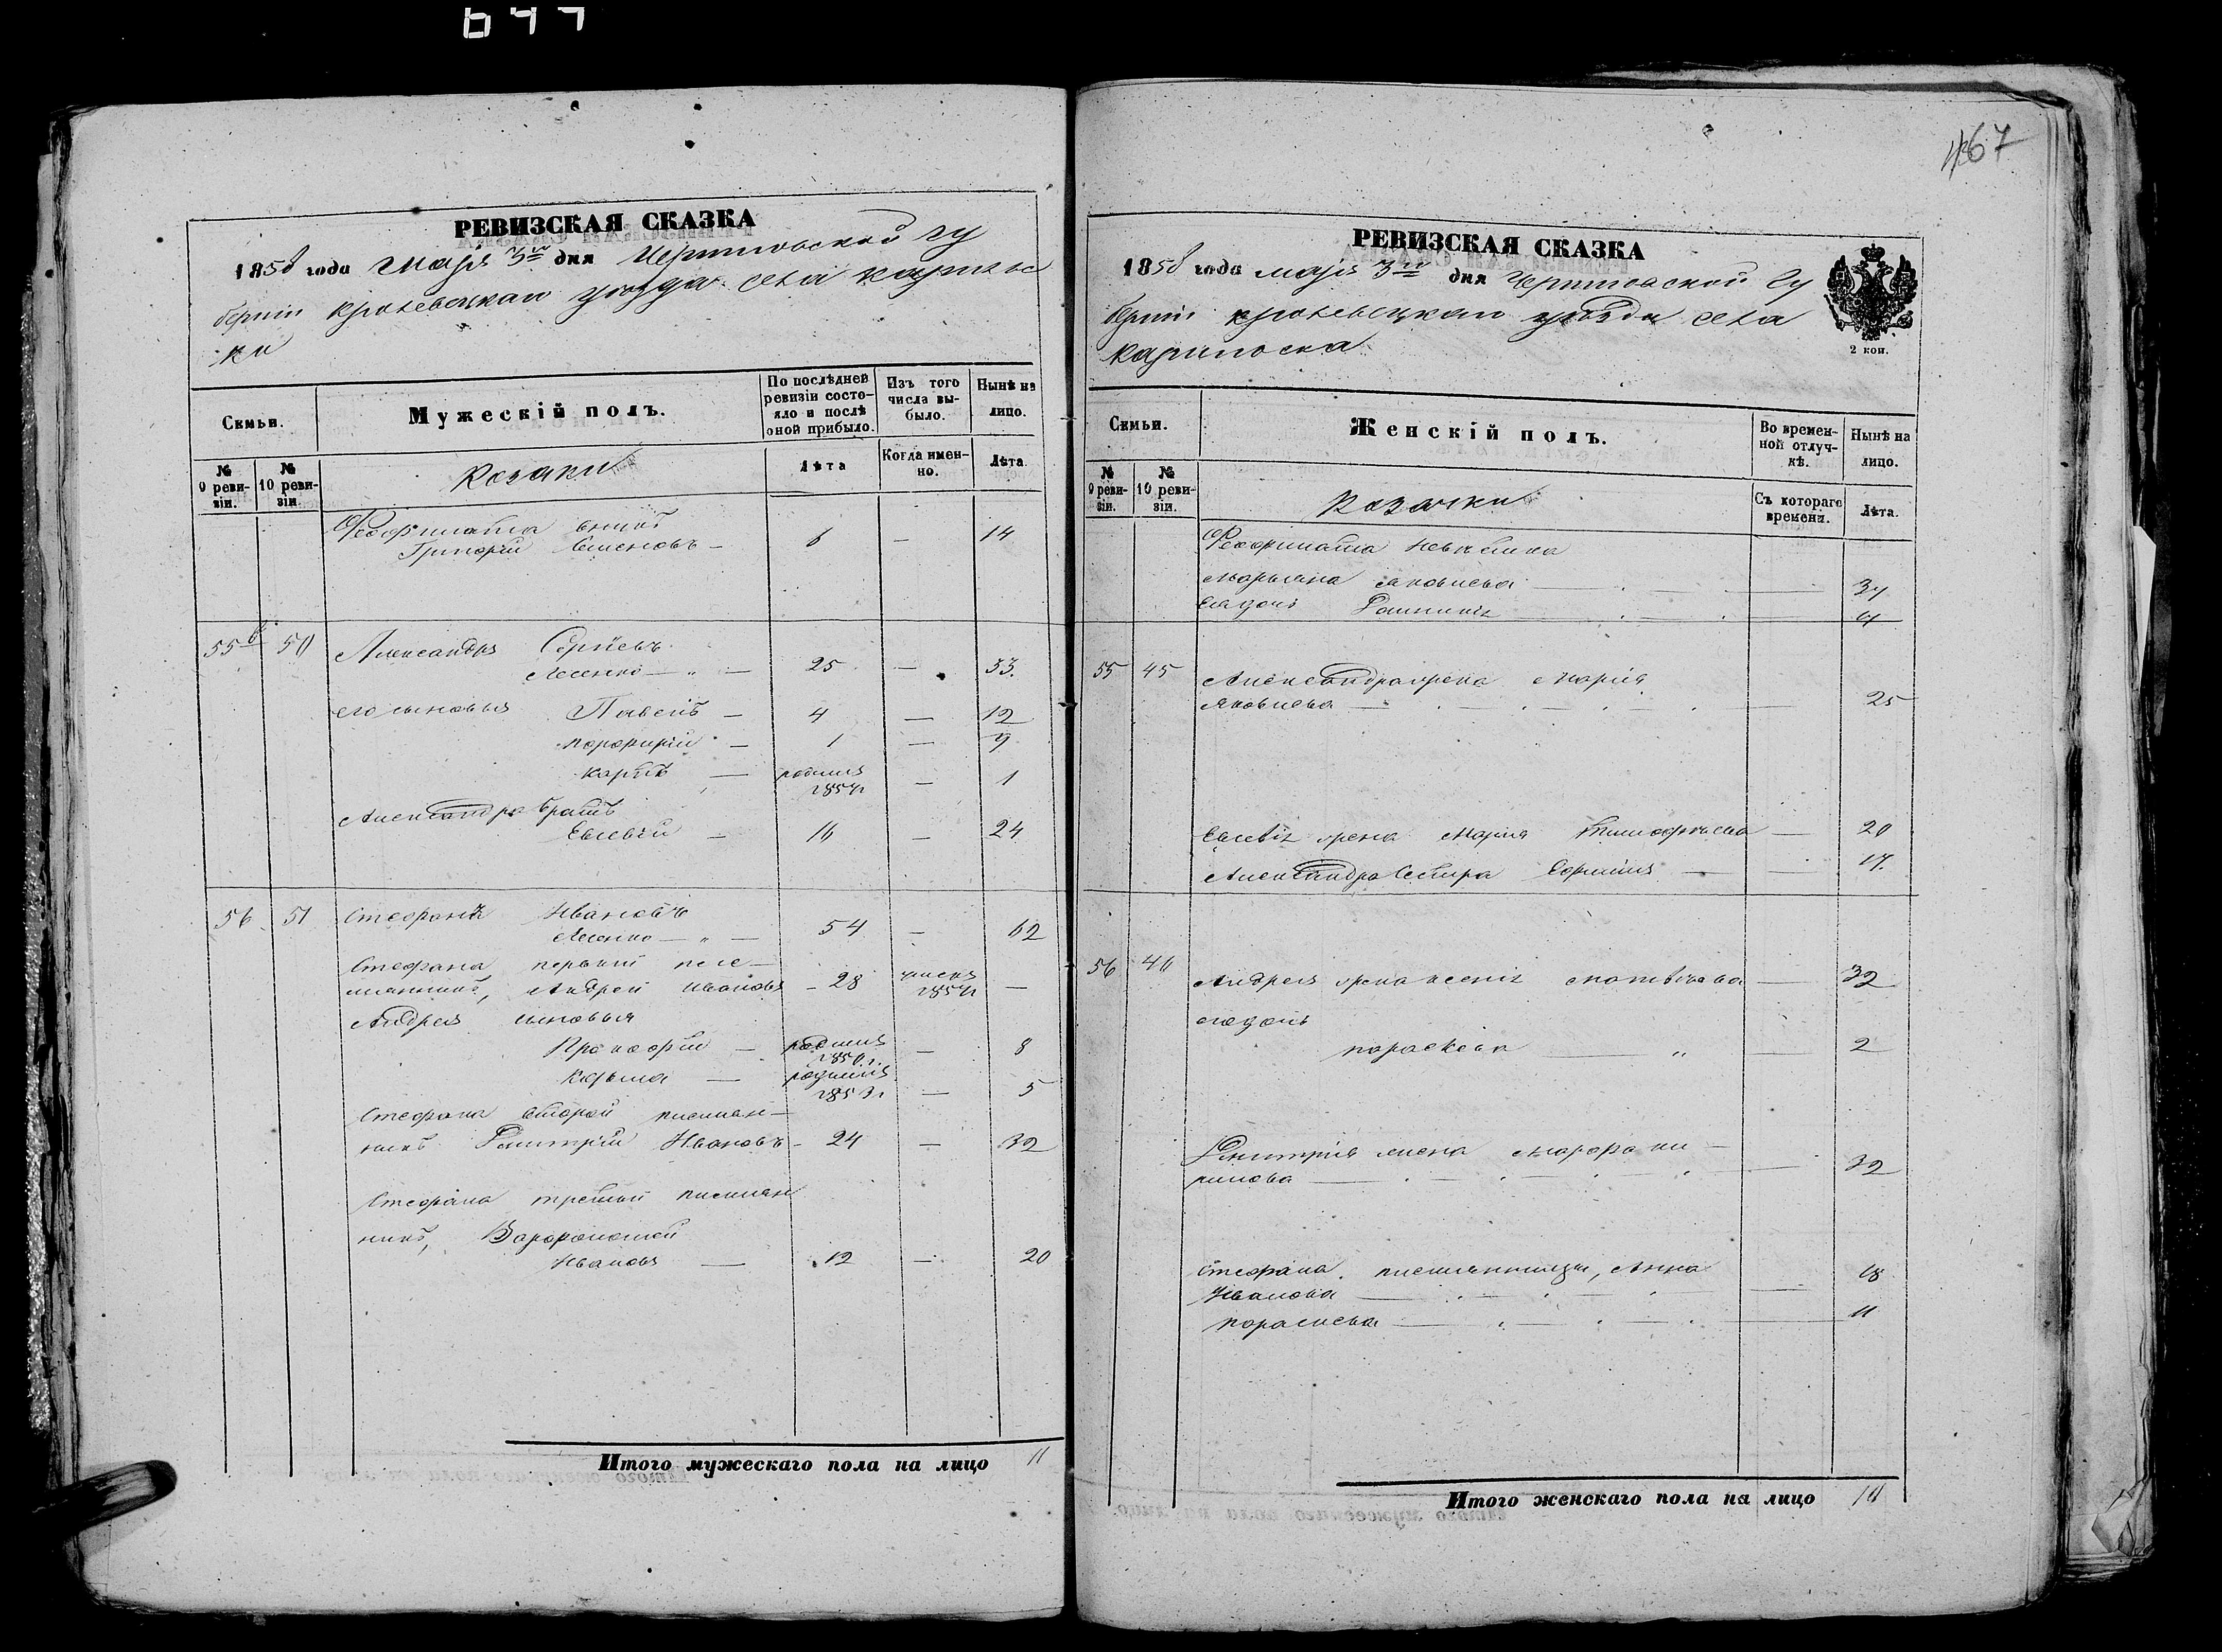 467
РЕВИЗСКАЯ СКАЗКА
1858 года Маія 3го дня Черниговской гу
берніи Кролевецкаго уѣзда села
ки
Семьи.
Мужескій полъ.
По послѣдней ревизіи состояло и послѣ оной прибыло.
Изъ того числа выбыло.
Нынѣ на лицо.
№ 9 ревизіи.
№ 10 ревизіи.
Козаки
Лѣта
Когда именно.
Лѣта.
внукъ
Григорій Семеновъ — 6 — 14
55 50 Александръ Сергѣевъ
25 — 33.
его сыновья Павелъ — 4 — 12
Порфирій — 1 — 9
Карпъ — родился 1857г — 1
Александра братъ
Евсевій — 16 — 24
56 51 Стефанъ Ивановъ
54 — 62
Стефана первый пле—
мянникъ, Андрей Ивановъ — 28 1857г —
Андрея сыновья
Прокофій — родился 1850г. — 8
Козьма — родился 1853г — 5
Стефана второй племян—
никъ Дмитрій Ивановъ — 24 — 32
Стефана третий племян
никъ, Варфоломей
Ивановъ — 12 — 20
Итого мужескаго пола на лицо 11
РЕВИЗСКАЯ СКАЗКА
1858 года маія 3го дня Черниговской Гу
берніи Кролевецкаго уѣзда села
2 коп.
Семьи.
Женскій полъ.
Во временной отлучкѣ.
Нынѣ на лицо.
№ 9 ревизіи.
№ 10 ревизіи.
Козачки
Съ котораго времени.
Лѣта.
невѣстка
Марьяна Яковлева — — 34
Ея дочь —
55 45 Александра жена Марія
Яковлева — — 25
Евсевія жена Марія Тимофеева — 20
Александра Сестра Ефимія — 17.
56 46 Андрея жена Ксенія Матвѣева — 32
его дочь
Параскева „ — 2
Дмитрія жена Марфа Ки—
рилова — — 32
Стефана племянницы, Анна
Иванова — — 18
Параскева — 11
Итого женскаго пола на лицо 10